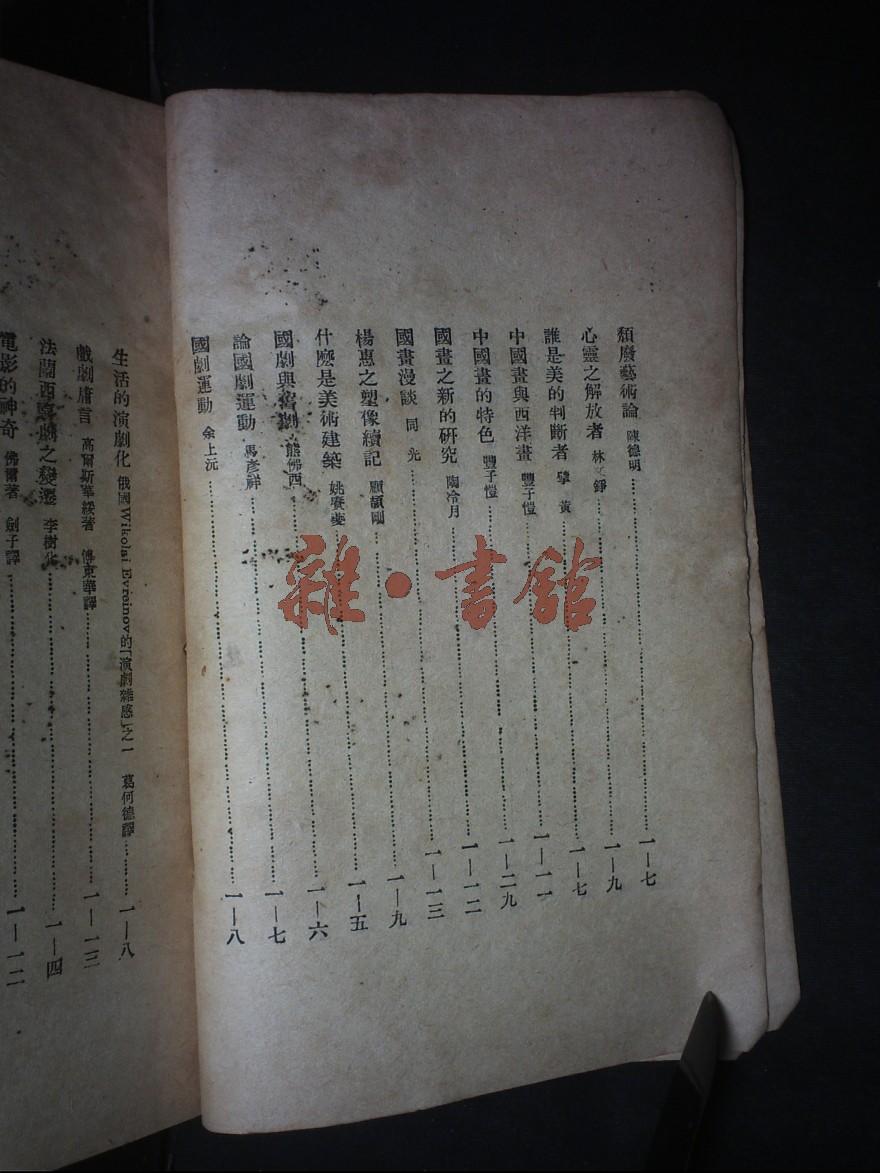 頹廢藝術論 陳德明 一—七
心靈之解放者 林文錚 一—九
誰是美的判斷者 擘黃 一—七
中國畫與西洋畫 豐子愷 一—一一
中國畫的特色 豐子愷 一—二九
國畫之新的研究 陶冷月 一—一二
國畫漫談 同光 一—一三
楊惠之塑像續記 顧頡剛 一—九
什麽是美術建築 姚賡夔 一—五
國劇與舊劇 熊佛西 一—六
論國劇運動 馬彥祥 一—七
國劇運動 余上沅 一—八
生活的演劇化 俄國Wikolai Evreinov的「演劇雜感」之一 葛何德譯 一—八
戲劇庸言 高爾斯華綏著 傅東華譯 一—一三
法蘭西劇之變遷 李樹化 一—四
電影的神奇 佛爾著 劍子譯 一—一二
雜·書舘